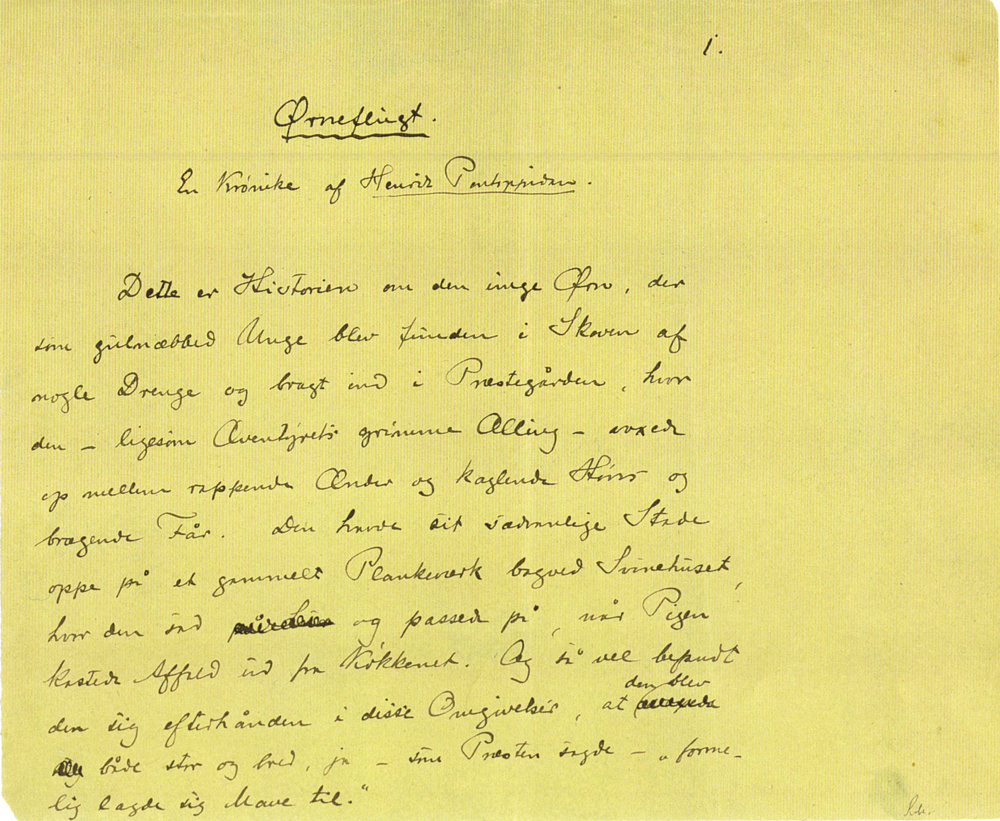 1.
Ørneflugt.
En Krønike af Henrik Pontoppidan.
Dette er Historien om den unge Ørn, der
som gulnæbbed Unge blev funden i Skoven af
nogle Drenge og bragt ind i Præstegården, hvor
den – ligesom Æventyrets grimme Ælling – voxede
op mellem rappende Ænder og kaglende Høns og
brægende Får. Den havde sit sædvanlige Stade
oppe på et gammelt Plankeværk bagved Svinehuset,
hvor den sad og passede på, når Pigen
kastede Affald ud fra Køkkenet. Og så vel befandt
den sig efterhånden i disse Omgivelser, at den blev
både stor og bred, ja – som Præsten sagde – „forme-
lig lagde sig Mave til.“